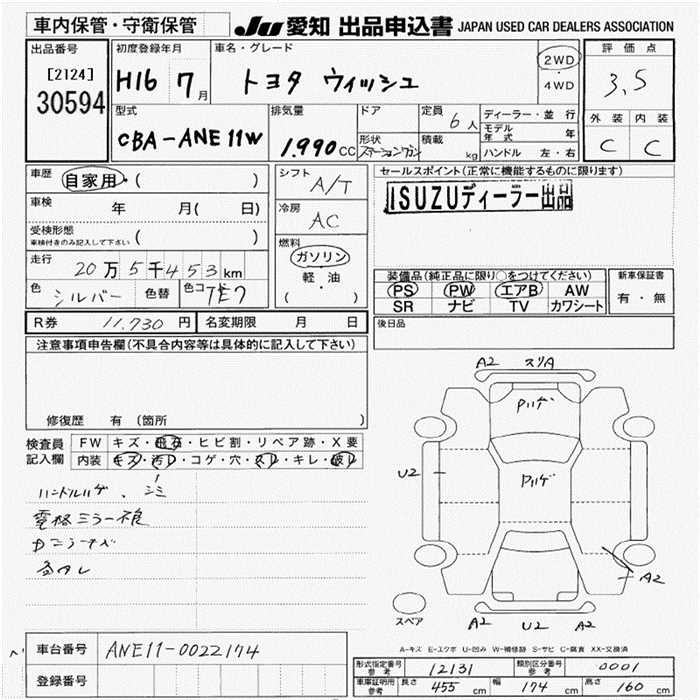 車内保管・守衛保管
JU 愛知 出品申込書 JAPAN USED CAR DEALERS ASSOCIATION
出品番号
[2124]
30594
初度登録年月
H16 7月
車名・グレード
トヨタ ウィッシュ
2WD
・
4WD
評価点
3.5
外装 内装
C C
型式
CBA-ANE11W
排気量
1.990cc
ドア
形状
ステーションワゴン
定員
6人
積載
kg
ディーラー・並行
モデル年式 年
ハンドル 左・右
車歴
自家用・( )
車検 年 月( 日)
受検形態
車検付きのみ記入して下さい ( )
走行
20万5千453km
色 シルバー 色替 色コ 1E7
R券 11,730円 名変期限 月 日
シフト
A/T
冷房
AC
燃料
ガソリン
軽・油
・
( )
セールスポイント(正常に機能するものに限ります)
ISUZUディーラー出品
装備品(純正品に限り○をつけてください)
PS PW エアB AW
SR ナビ TV カワシート
新車保証書
有・無
後日品
注意事項申告欄(不具合内容等は具体的に記入して下さい)
修復歴 有 (箇所 )
検査員記入欄
FW キズ・飛石・ヒビ割・リペア跡・X要
内装 キズ・汚レ・コゲ・穴・スレ・キレ・破レ
ハンドルハゲ、シミ
電格ミラー不良
A2 スリA
Pハゲ
U2
Pハゲ
A2
スペア
A2 U2 A2
A-キズ E-エクボ U-凹み W-補修跡 S-サビ C-腐食 XX-交換済
車台番号 ANE11-0022174
登録番号
形式指定番号 参考 12131 類別区分番号 参考 0001
車庫証明用 参考 長さ 455cm 幅 174cm 高さ 160cm